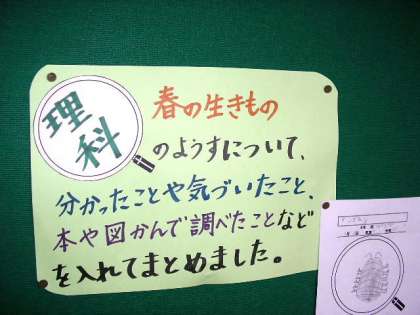 理科
春の生きもの
のようすについて、
分かったことや気づいたこと、
本や図かんで調べたことなど
を入れてまとめました。